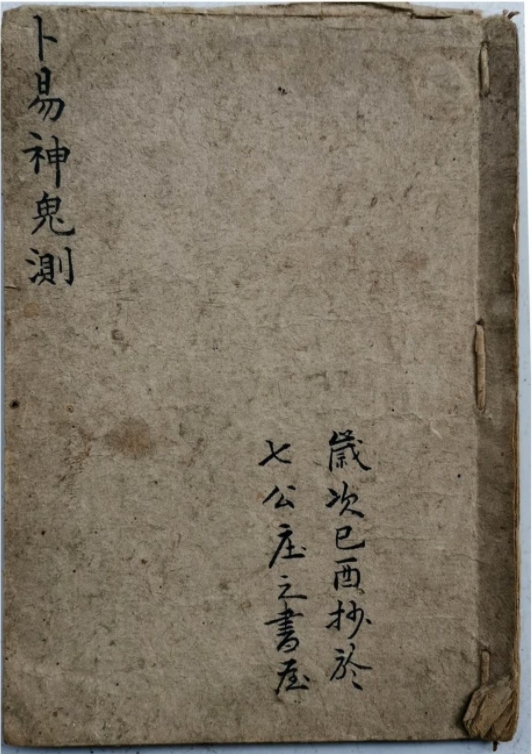 歲次己酉抄於
七公庄之書屋
卜易神鬼測